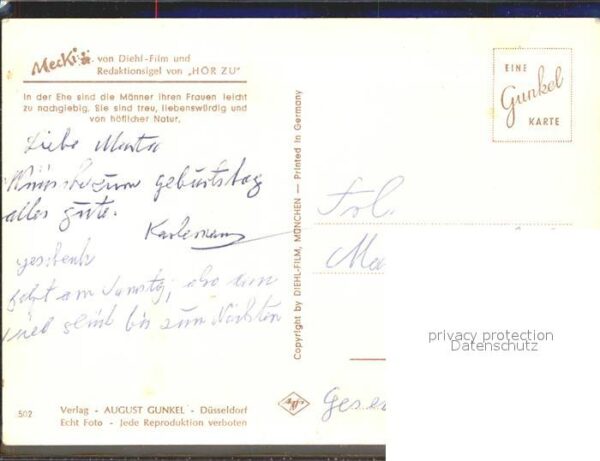 Mecki von Diehl-Film und
Redaktionsigel von „HÖR ZU"
In der Ehe sind die Männer ihren Frauen leicht
zu nachgiebig. Sie sind treu, liebenswürdig und
von höflicher Natur.
Liebe
zum geburtstag
alles gute.
Karlemann
geschenk
am also
viel glück bis zum Nächsten
502
Verlag - AUGUST GUNKEL - Düsseldorf
Echt Foto - Jede Reproduktion verboten
Copyright by DIEHL-FILM, MÜNCHEN — Printed in Germany
EINE
Gunkel
KARTE
Frl.
Ma
privacy protection
Datenschutz
Agfa